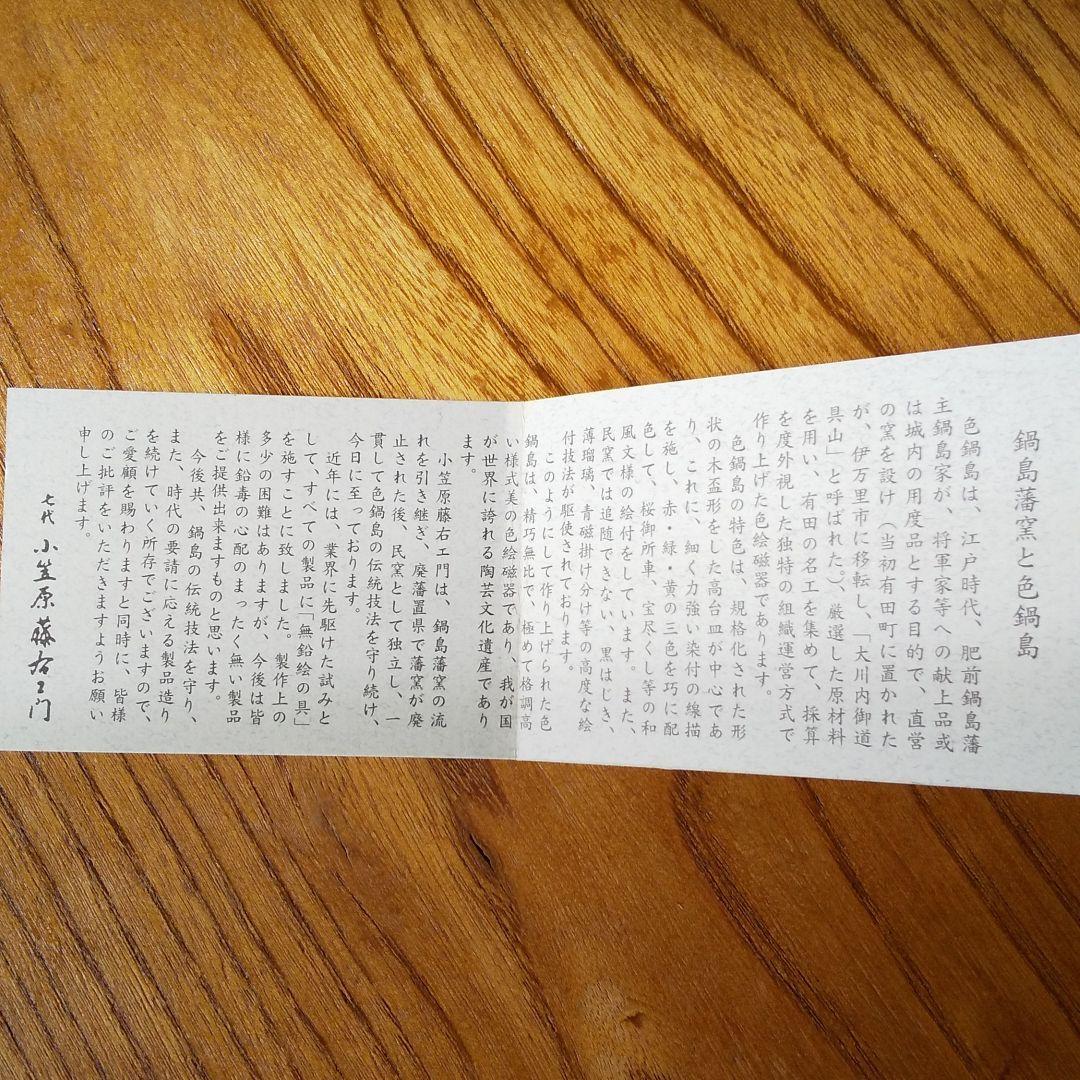 鍋島藩窯と色鍋島
色鍋島は、江戸時代、肥前鍋島藩
主鍋島家が、将軍家等への献上品或
は城内の用度品とする目的で、直営
の窯を設け（当初有田町に置かれた
が、伊万里市に移転し、「大川内御道
具山」と呼ばれた。）、厳選した原材料
を用い、有田の名工を集めて、採算
を度外視した独特の組織運営方式で
作り上げた色絵磁器であります。
色鍋島の特色は、規格化された形
状の木盃形をした高台皿が中心であ
り、これに、細く力強い染付の線描
を施し、赤・緑・黄の三色を巧に配
色して、桜御所車、宝尽くし等の和
風文様の絵付をしています。また、
民窯では追随できない、黒はじき、
薄瑠璃、青磁掛け分け等の高度な絵
付技法が駆使されております。
このようにして作り上げられた色
鍋島は、精巧無比で、極めて格調高
い様式美の色絵磁器であり、我が国
が世界に誇れる陶芸文化遺産であり
ます。
小笠原藤右エ門は、鍋島藩窯の流
れを引き継ぎ、廃藩置県で藩窯が廃
止された後、民窯として独立し、一
貫して色鍋島の伝統技法を守り続け、
今日に至っております。
近年には、業界に先駆けた試みと
して、すべての製品に「無鉛絵の具」
を施すことに致しました。製作上の
多少の困難はありますが、今後は皆
様に鉛毒の心配のまったく無い製品
をご提供出来ますものと思います。
今後共、鍋島の伝統技法を守り、
また、時代の要請に応える製品造り
を続けていく所存でございますので、
ご愛顧を賜わりますと同時に、皆様
のご批評をいただきますようお願い
申し上げます。
七代 小笠原藤右エ門